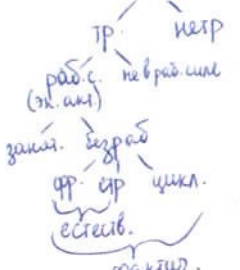 тр. нетр
раб.с. не в раб. силе
(эк. акт.)
занят. безраб
фр. стр цикл.
естеств.
фактич.